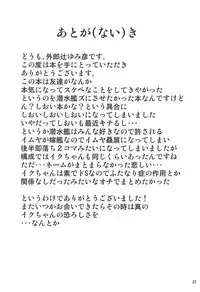 あとが(ない)き
どうも、外郎辻ゆみ彦です。
この度は本を手にとっていただき
ありがとうございます。
この本は友達がなんか
本気になってスケベなことをしてきやがった
というのを潜水艦ズにさせたかった本なんですけど
なんでしたかね?という具合に
しおいしおいしおいになってしまいました
いやだってしおいも最近キテるし…
という潜水艦はみんな好きなので許される
イムヤが嫁艦なのでイムヤ贔屓になってしまい
後半部落ち2コマみたいになってしまいましたが
構成ではイクちゃんも同じくらいあったんですね
ただ…ネームがまとまらなかった悲しい…
イクちゃんは素でドSなのでふたなり症の作用とか
関係なしだったみたいなオチでまとめたかった
というわけでありがとうございました!
またいつかお会いできたらその時は真の
イクちゃんの恐ろしさを
…なんとか
21